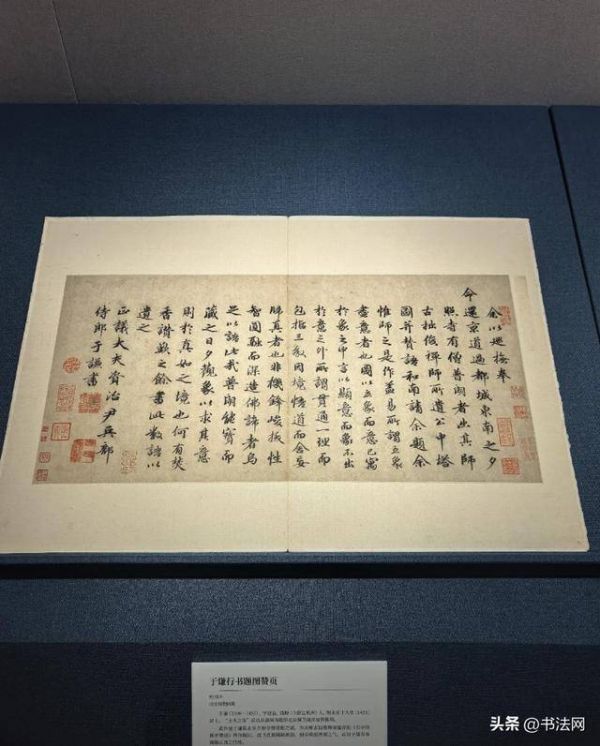 余以巡撫奉
命還京道過都城東南之夕
照寺有僧普朗者出其師
古拙俊禪師所遺公中塔
圖并贊語和南請余題余
惟師之是作蓋易所謂立象
盡意者也圖以立象而意已寓
於象之中言以顯意而象不出
於意之外所謂貫通一理而
包括三教因境悟道而舍妄
歸真者也非機鋒峻拔性
智圓融而深造佛諦者烏
足以語此哉普朗能寶而
藏之日夕觀象以求其意
則於真如之境也何有焚
香讚歎之餘書此數語以
遺之
正議大夫資治尹兵部
侍郎于謙書
于谦行书题图赞页
头条@书法网